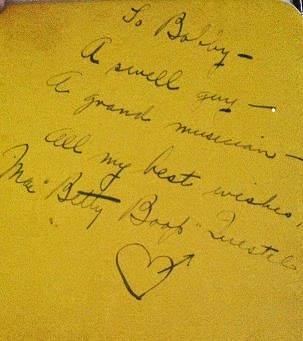 To Bobby—
A swell guy—
A grand musician—
All my best wishes,
Mae "Betty Boop" Questel